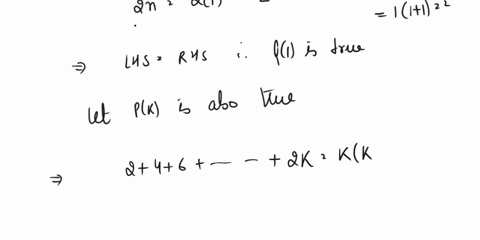 2n = 2(1) = 1(1+1) = 2
⇒ LHS = RHS ∴ P(1) is true
let P(K) is also true
⇒ 2+4+6+ — — + 2K = K(K